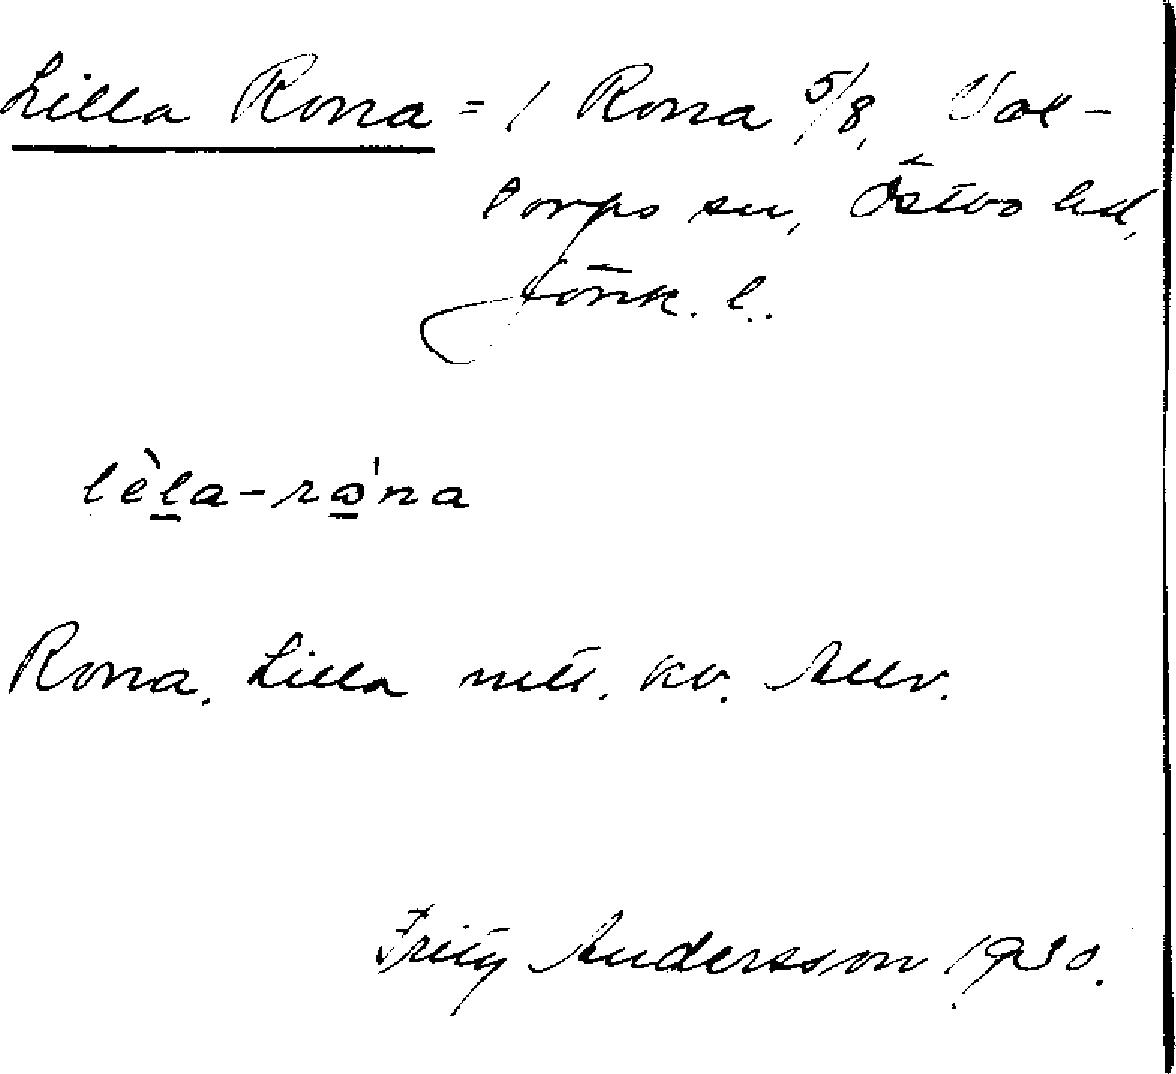 Lilla Rona = 1 Rona 5/8, Val-
torps sn, Östbo hd,
Jönk. l.
lèla-rǫ́na
Rona, Lilla mtl. kv. Allv.
Fritz Andersson 1930.